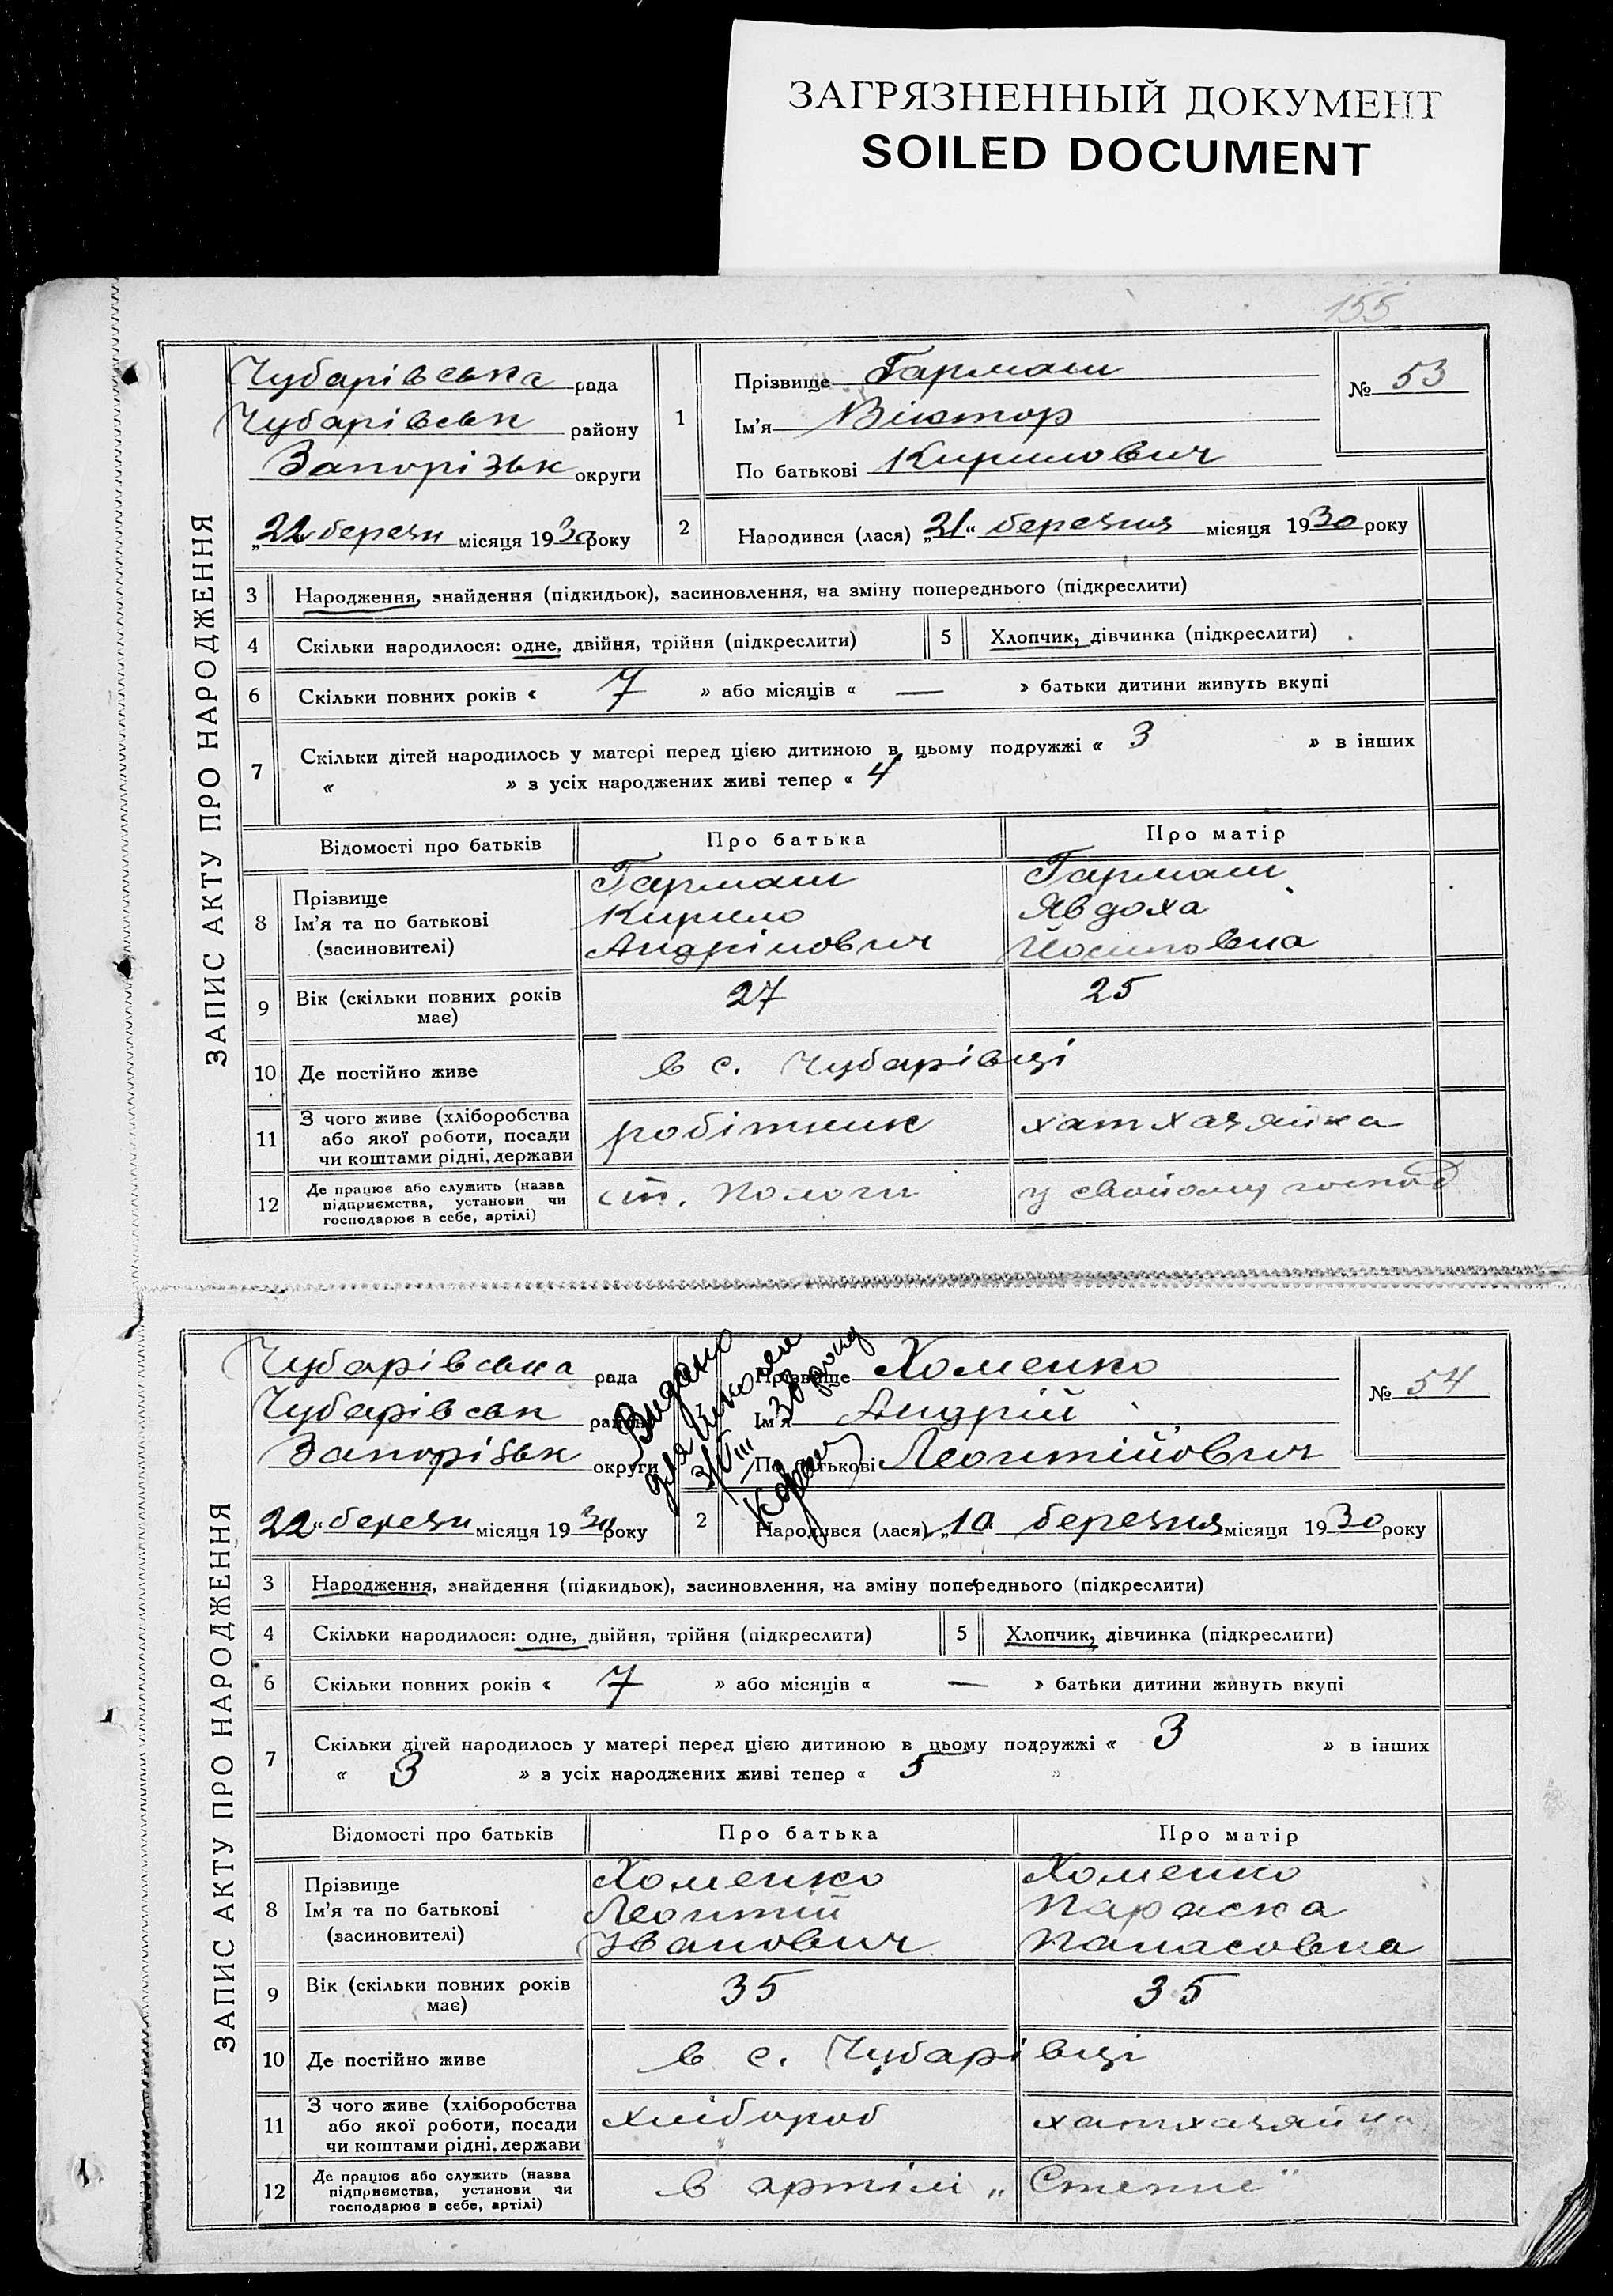 ЗАГРЯЗНЕННЫЙ ДОКУМЕНТ
SOILED DOCUMENT
155
ЗАПИС АКТУ ПРО НАРОДЖЕННЯ
Чубарівська рада
Чубарівськ району
Запорізьк округи
„22 березн місяця 1930 року
1 Прізвище Гармаш
Ім'я Віктор
По батькові Кирилович
№ 53
2 Народився (лася) „21“ березня місяця 1930 року
3 Народження, знайдення (підкидьок), засиновлення, на зміну попереднього (підкреслити)
4 Скільки народилося: одне, двійня, трійня (підкреслити) 5 Хлопчик, дівчинка (підкреслити)
6 Скільки повних років « 7 » або місяців « — » батьки дитини живуть вкупі
7 Скільки дітей народилось у матері перед цією дитиною в цьому подружжі « 3 » в інших
« » з усіх народжених живі тепер « 4
Відомості про батьків Про батька Про матір
8 Прізвище Гармаш Гармаш
Ім'я та по батькові Кирило Явдоха
(засиновителі) Андрійович Йосиповна
9 Вік (скільки повних років має) 27 25
10 Де постійно живе в с. Чубарівці
11 З чого живе (хліборобства або якої роботи, посади чи коштами рідні, держави робітник хатхазяйка
12 Де працює або служить (назва підприємства, установи чи господарює в себе, артілі) ст. Пологи у свойому господ
ЗАПИС АКТУ ПРО НАРОДЖЕННЯ
Чубарівська рада
Чубарівськ району
Запорізьк округи
22“ березн місяця 1930 року
Видано
для
30 року
Прізвище Хоменко
Ім'я Андрій
По батькові Леонтійович
№ 54
2 Народився (лася) „10 березня місяця 1930 року
3 Народження, знайдення (підкидьок), засиновлення, на зміну попереднього (підкреслити)
4 Скільки народилося: одне, двійня, трійня (підкреслити) 5 Хлопчик, дівчинка (підкреслити)
6 Скільки повних років « 7 » або місяців « — » батьки дитини живуть вкупі
7 Скільки дітей народилось у матері перед цією дитиною в цьому подружжі « 3 » в інших
« 3 » з усіх народжених живі тепер « 5 »
Відомості про батьків Про батька Про матір
8 Прізвище Хоменко Хоменко
Ім'я та по батькові Леонтій Параска
(засиновителі) Іванович Панасовна
9 Вік (скільки повних років має) 35 35
10 Де постійно живе в с. Чубарівці
11 З чого живе (хліборобства або якої роботи, посади чи коштами рідні, держави хлібороб хатхазяйка
12 Де працює або служить (назва підприємства, установи чи господарює в себе, артілі) в артілі „Степне"